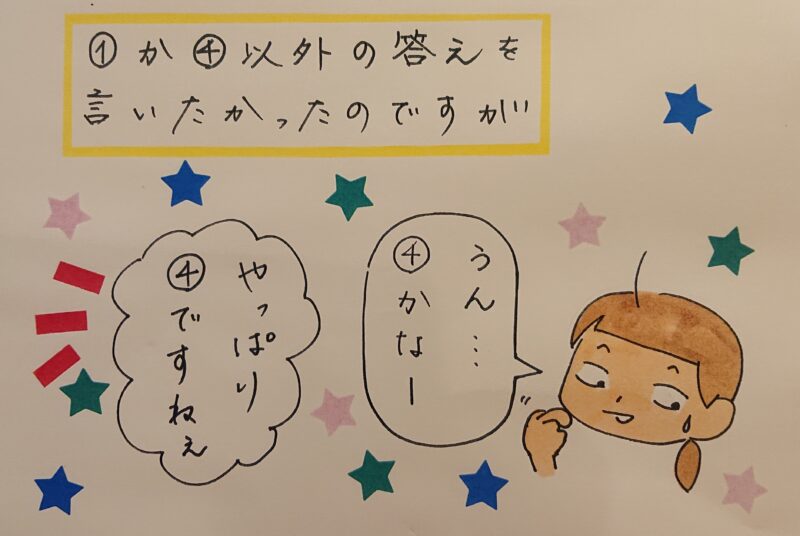 ①か④以外の答えを
言いたかったのですが
うん…
④かなー
やっぱり
④ですねぇ